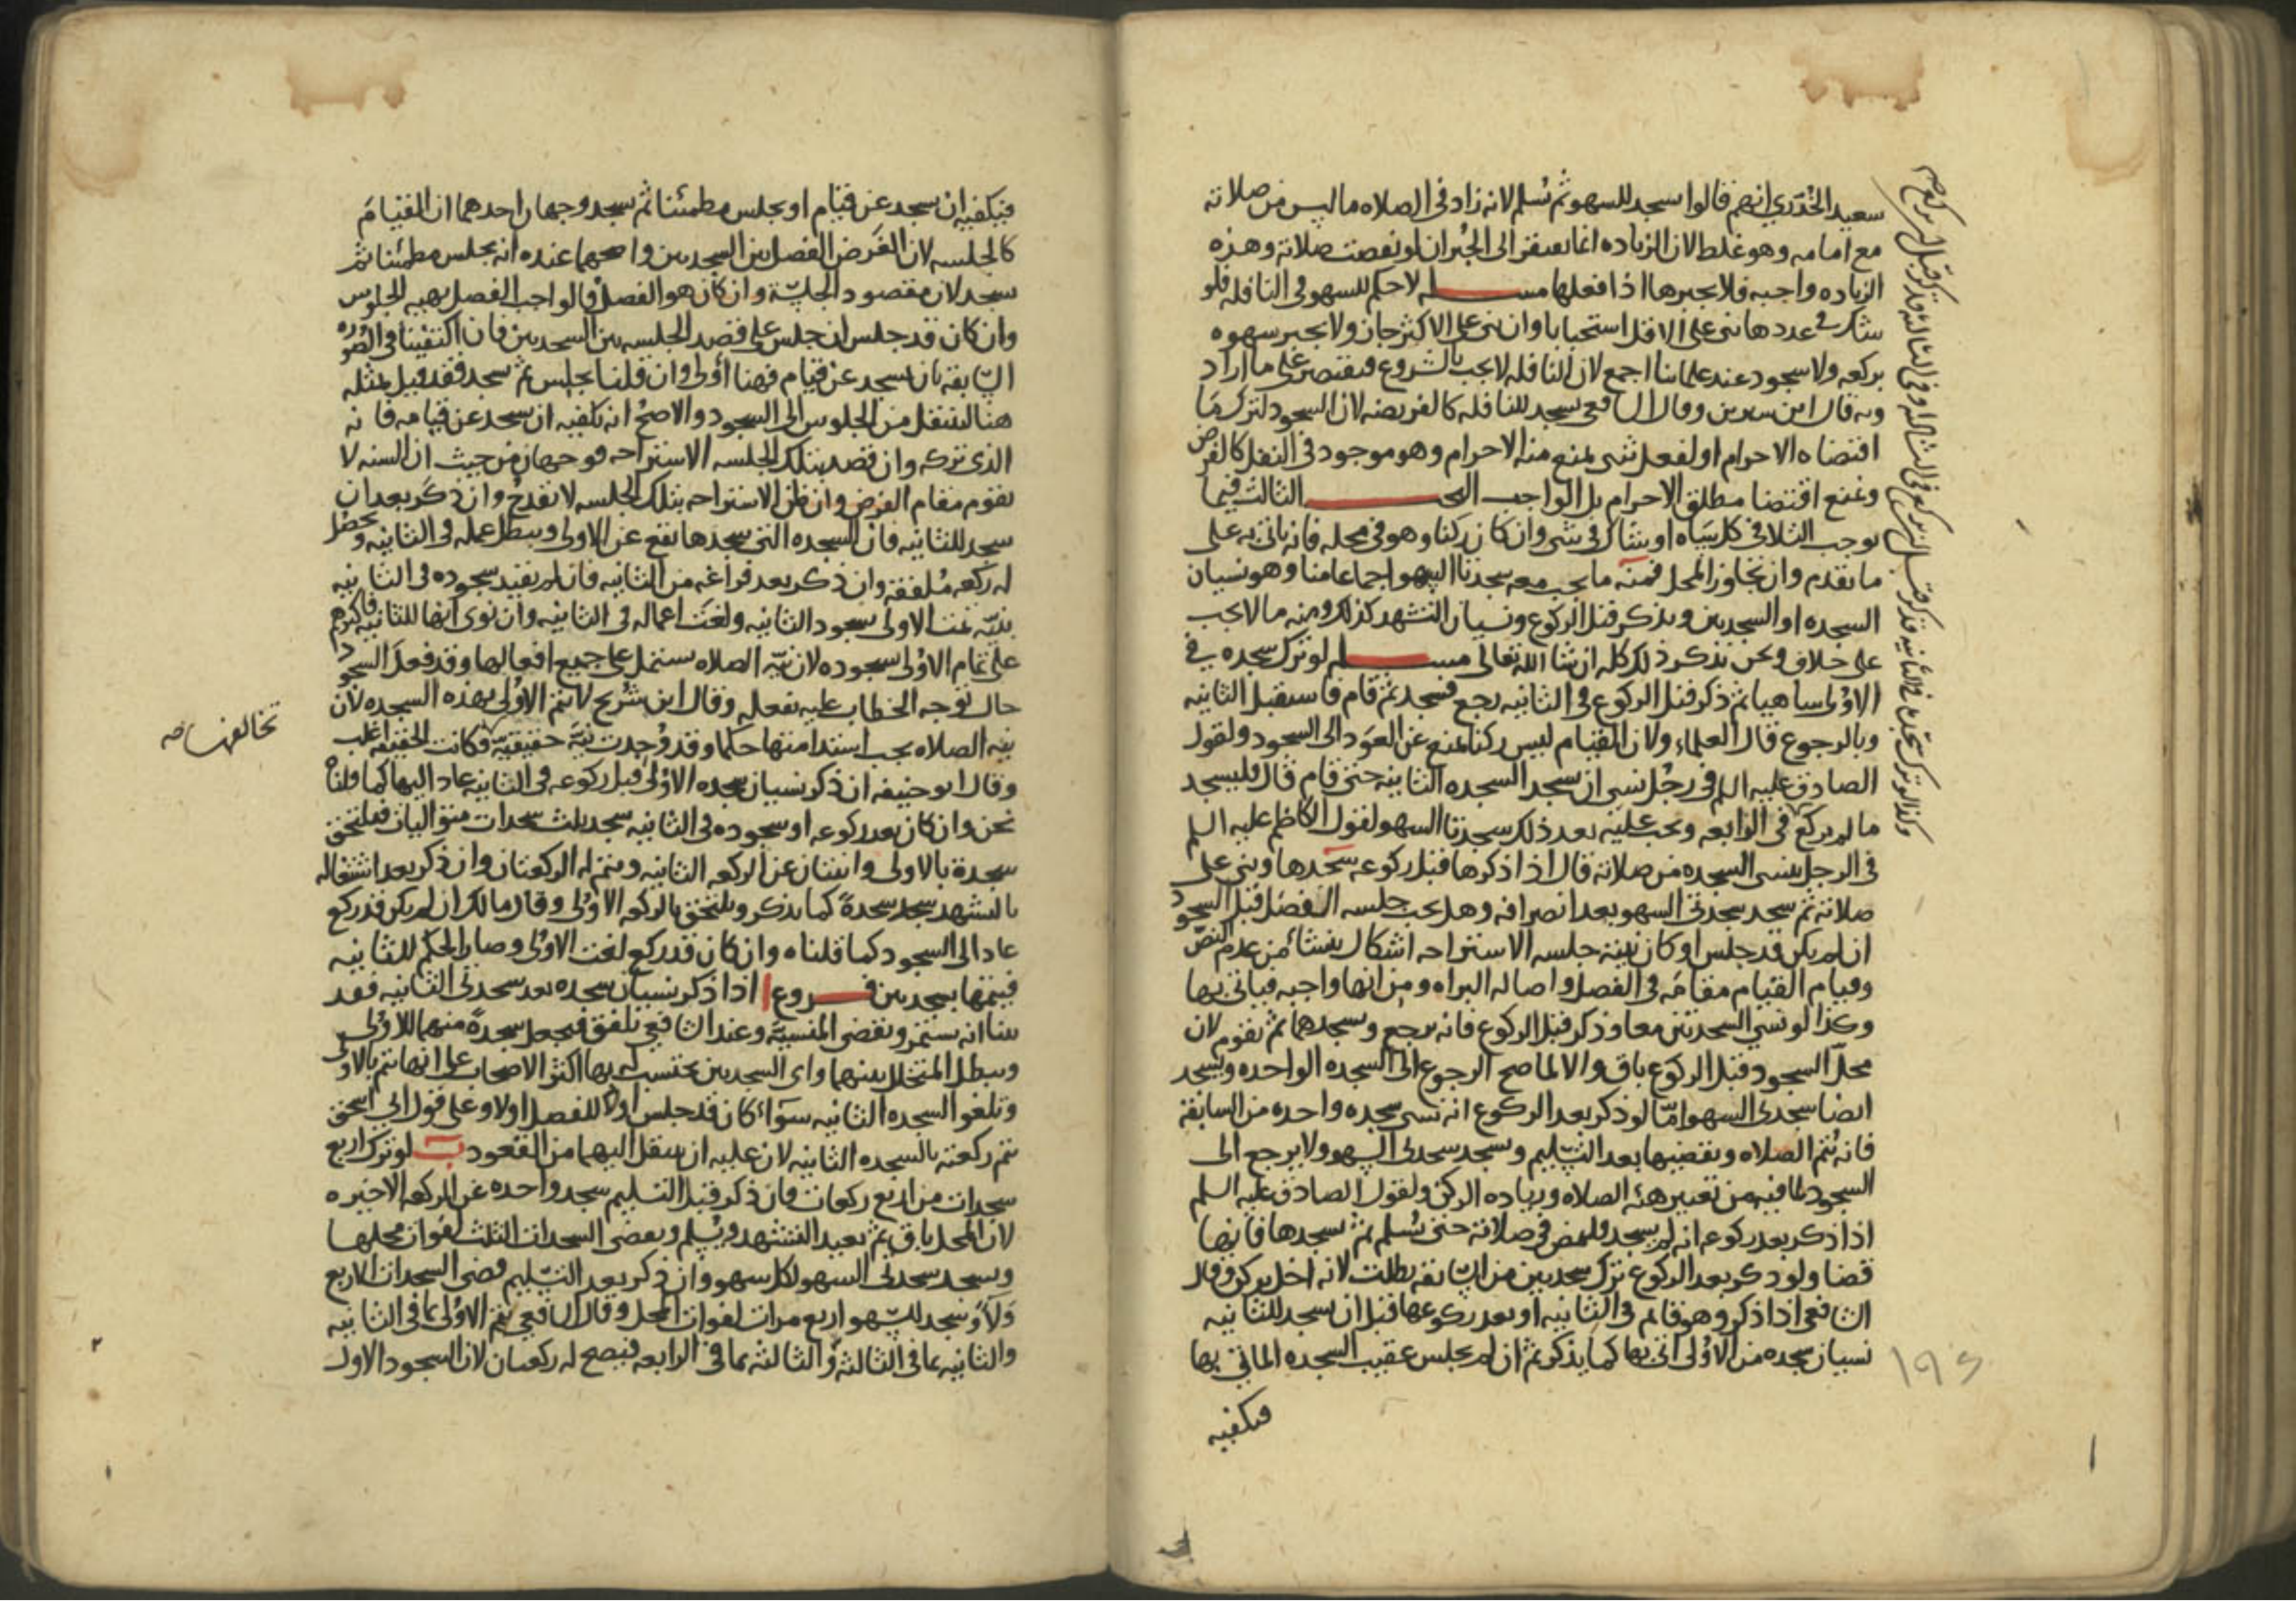 سعيد الخدري انهم قالوا سجد للسهو ثم تسلم لانه زاد في الصلاه ما ليس من صلاته
مع امامه وهو غلط لان الزياده انما تفتقر الى الجبران لو نقصت صلاته وهذه
الزياده واجبه فلا يجبرها اذا فعلها مسله لا حكم للسهو في النافله فلو
شك في عددها بنى على الاقل استحبابا وان بنى على الاكثر جاز ولا يجبر سهوه
بركعه ولا سجود عند علمائنا اجمع لان النافله لا يجب بالشروع فيقتصر على ما اراد
وبه قال ابن سيرين وقال الشافعي يسجد للنافله كالفريضه لان السجود لترك ما
اقتضاه الاحرام او لفعل شي يمنع منه الاحرام وهو موجود في النفل كالفرض
ونمنع اقتضا مطلق الاحرام بل الواجب البحـ الثالث فيما
يوجب التلافي كل ساه او شاك في شي وان كان ركنا وهو في محله فانه ياتي به على
ما تقدم وان تجاوز المحل فمنه ما يجب معه سجدتا السهو اجماعا منا وهو نسيان
السجده او السجدتين ويذكر قبل الركوع ونسيان التشهد كذلك ومنه ما لا يجب
على خلاف ونحن نذكر ذلك كله ان شا الله تعالى مسله لو ترك سجده في
الاولى ساهيا ثم ذكر قبل الركوع في الثانيه رجع فسجد ثم قام فاستقبل الثانيه
وبالرجوع قال العلماء ولان القيام ليس ركنا يمنع عن العود الى السجود ولقول
الصادق عليه السلم في رجل نسي ان سجد السجده الثانيه حتى قام قال فليسجد
ما لم يركع في الرابعه ويجب عليه بعد ذلك سجدتا السهو لقول الكاظم عليه السلم
في الرجل ينسى السجده من صلاته قال اذا ذكرها قبل ركوعه سجدها وبنى على
صلاته ثم سجد سجدتي السهو بعد انصرافه وهل يجب جلسه الفصل قبل السجود
ان لم يكن قد جلس او كان نيته جلسه الاستراحه اشكال ينشأ من عدم النص
وقيام القيام مقامه في الفصل واصاله البراه ومن انها واجبه فياتي بها
وكذا لو نسي السجدتين معا وذكر قبل الركوع فانه يرجع ويسجدهما ثم يقوم لان
محل السجود قبل الركوع باق والا لما صح الرجوع الى السجده الواحده ويسجد
ايضا سجدتي السهو امّا لو ذكر بعد الركوع انه نسي سجده واحده من السابقة
فانه يتم الصلاه ويقضيها بعد التسليم ويسجد سجدتي السهو ولا يرجع الى
السجود لما فيه من تغيير هيئه الصلاه وزياده الركن ولقول الصادق عليه السلم
اذا ذكر بعد ركوعه انه لم يسجد فليمض في صلاته حتى يسلم ثم يسجدها فانها
قضا ولو ذكر بعد الركوع ترك سجدتين من السابقه بطلت لانه اخل بركن وقال
الشافعي اذا ذكر وهو قائم في الثانيه او بعد ركوعها قبل ان يسجد للثانيه
نسيان سجده من الاولى اتى بها كما يذكر ثم ان لم يجلس عقيب السجده الماتي بها
فيكفيه
وكذا لو ترك سجده في الثانيه فذكر قبل ان يركع في الثالثه او في الثالثه فذكر قبل ان يركع صح
١٩٤
فيكفيه ان سجد عن قيام او يجلس مطمئنا ثم سجد وجهان احدهما ان القيام
كالجلسه لان الغرض الفصل بين السجدتين واصحهما عنده انه يجلس مطمئنا ثم
سجد لان مقصود الجلسة وان كان هو الفصل فالواجب الفصل بهيه الجلوس
وان كان قد جلس ان جلس على قصد الجلسه بين السجدتين فان اكتفينا في الصوره
السابقه بان يسجد عن قيام فهنا اولى وان قلنا يجلس ثم سجد فقد قيل بمثله
هنا لينتقل من الجلوس الى السجود والاصح انه يكفيه ان يسجد عن قيامه فانه
الذي تركه وان قصد بتلك الجلسه الاستراحه فوجهان من حيث ان السنه لا
تقوم مقام الفرض وان ظن الاستراحه بتلك الجلسه لا تقدح وان ذكر بعد ان
سجد للثانيه فان السجده التي سجدها تقع عن الاولى ويبطل عمله في الثانيه ويحصل
له ركعه ملفقه وان ذكر بعد فراغه من الثانيه فان لم يقيد سجوده في الثانيه
بنيّه تمت الاولى بسجود الثانيه ولغت اعماله في الثانيه وان نوى انها للثانيه فاكثرهم
على تمام الاولى بسجوده لان نيّه الصلاه تشتمل على جميع افعالها وقد فعل السجود
حال توجه الخطاب عليه بفعله وقال ابن شريح لا تتم الاولى بهذه السجده لان
نيه الصلاه يجب استدامتها حكما وقد وجدت نيّة حقيقيّة فكانت الحقيقيه اغلب
تخالفها صح
وقال ابو حنيفه ان ذكر نسيان سجده الاولى قبل ركوعه في الثانيه عاد اليها كما قلناه
نحن وان كان بعد ركوعه او سجوده في الثانيه سجد ثلث سجدات متواليات فيلتحق
سجدة بالاولى واثنتان عن الركعه الثانيه ويتم له الركعتان وان ذكر بعد اشتغاله
بالتشهد سجد سجدةً كما يذكر ويلتحق بالركعه الاولى وقال مالك ان لم يكن قد ركع
عاد الى السجود كما قلناه وان كان قد ركع لغت الاولى وصار الحكم للثانيه
فيتمها بسجدتين فروع ا اذا ذكر نسيان سجده بعد سجدتي الثانيه فقد
بينا انه يستمر ويقضي المنسيّة وعند الشافعي تلفق فيجعل سجدةً منهما للاولى
ويبطل المتخلل بينهما واي السجدتين يحتسب له بها اكثر الاصحاب على انها تتم بالاولى
وتلغو السجده الثانيه سوآء كان قد جلس اولا للفصل او لا وعلى قول ابي اسحق
يتم ركعته بالسجده الثانيه لان عليه ان ينتقل اليهما من القعود ب لو ترك اربع
سجدات من اربع ركعات فان ذكر قبل التسليم سجد واحده عن الركعه الاخيره
لان المحل باق ثم يعيد التشهد ويسلم ويقضي السجدات الثلث لفوات محلها
ويسجد سجدتي السهو لكل سهو وان ذكر بعد التسليم قضى السجدات الاربع
وَلاءً وسجد للسهو اربع مرات لفوات المحل وقال الشافعي يتم الاولى بما في الثانيه
والثانيه بما في الثالثه والثالثه بما في الرابعه فيصح له ركعتان لان السجود الاول